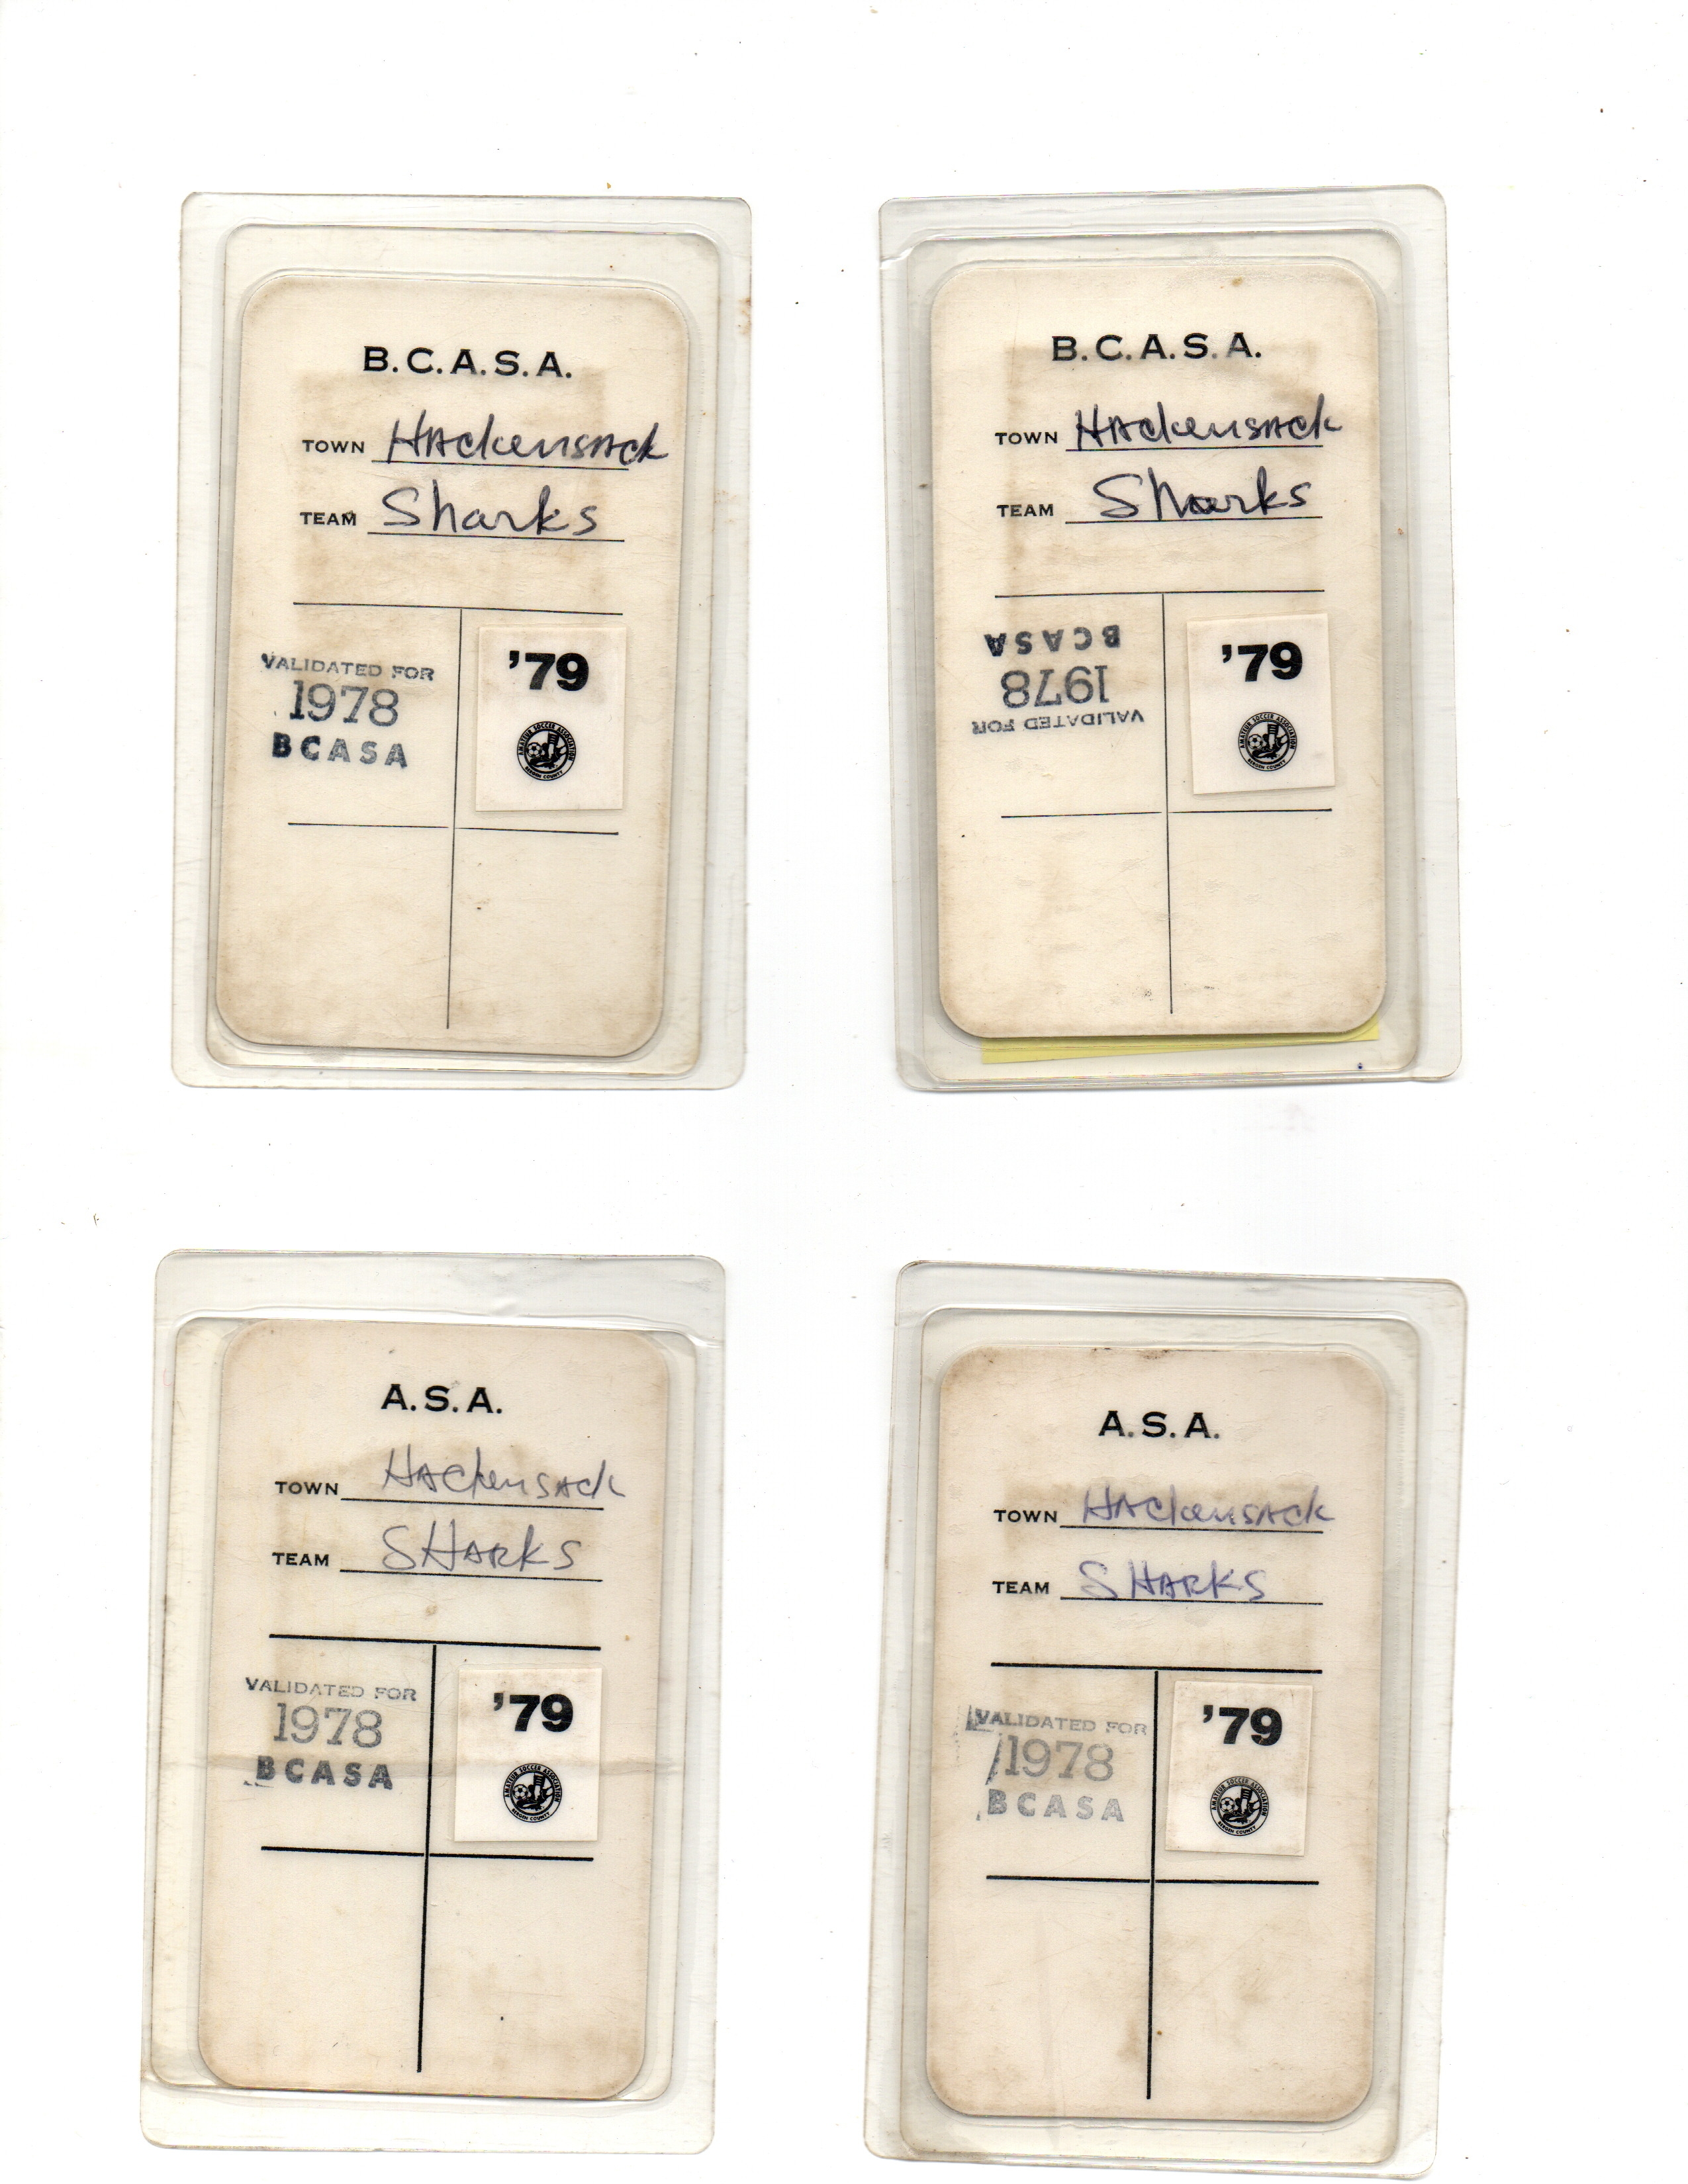 B.C.A.S.A.
TOWN HAckensAck
TEAM Sharks
VALIDATED FOR
1978
BCASA
'79
AMATEUR SOCCER ASSOCIATION
BERGEN COUNTY
B.C.A.S.A.
TOWN HAckensAck
TEAM Sharks
VALIDATED FOR
1978
BCASA
'79
AMATEUR SOCCER ASSOCIATION
BERGEN COUNTY
A.S.A.
TOWN HAckensAck
TEAM SHARKS
VALIDATED FOR
1978
BCASA
'79
AMATEUR SOCCER ASSOCIATION
BERGEN COUNTY
A.S.A.
TOWN HAckensAck
TEAM SHARKS
VALIDATED FOR
1978
BCASA
'79
AMATEUR SOCCER ASSOCIATION
BERGEN COUNTY